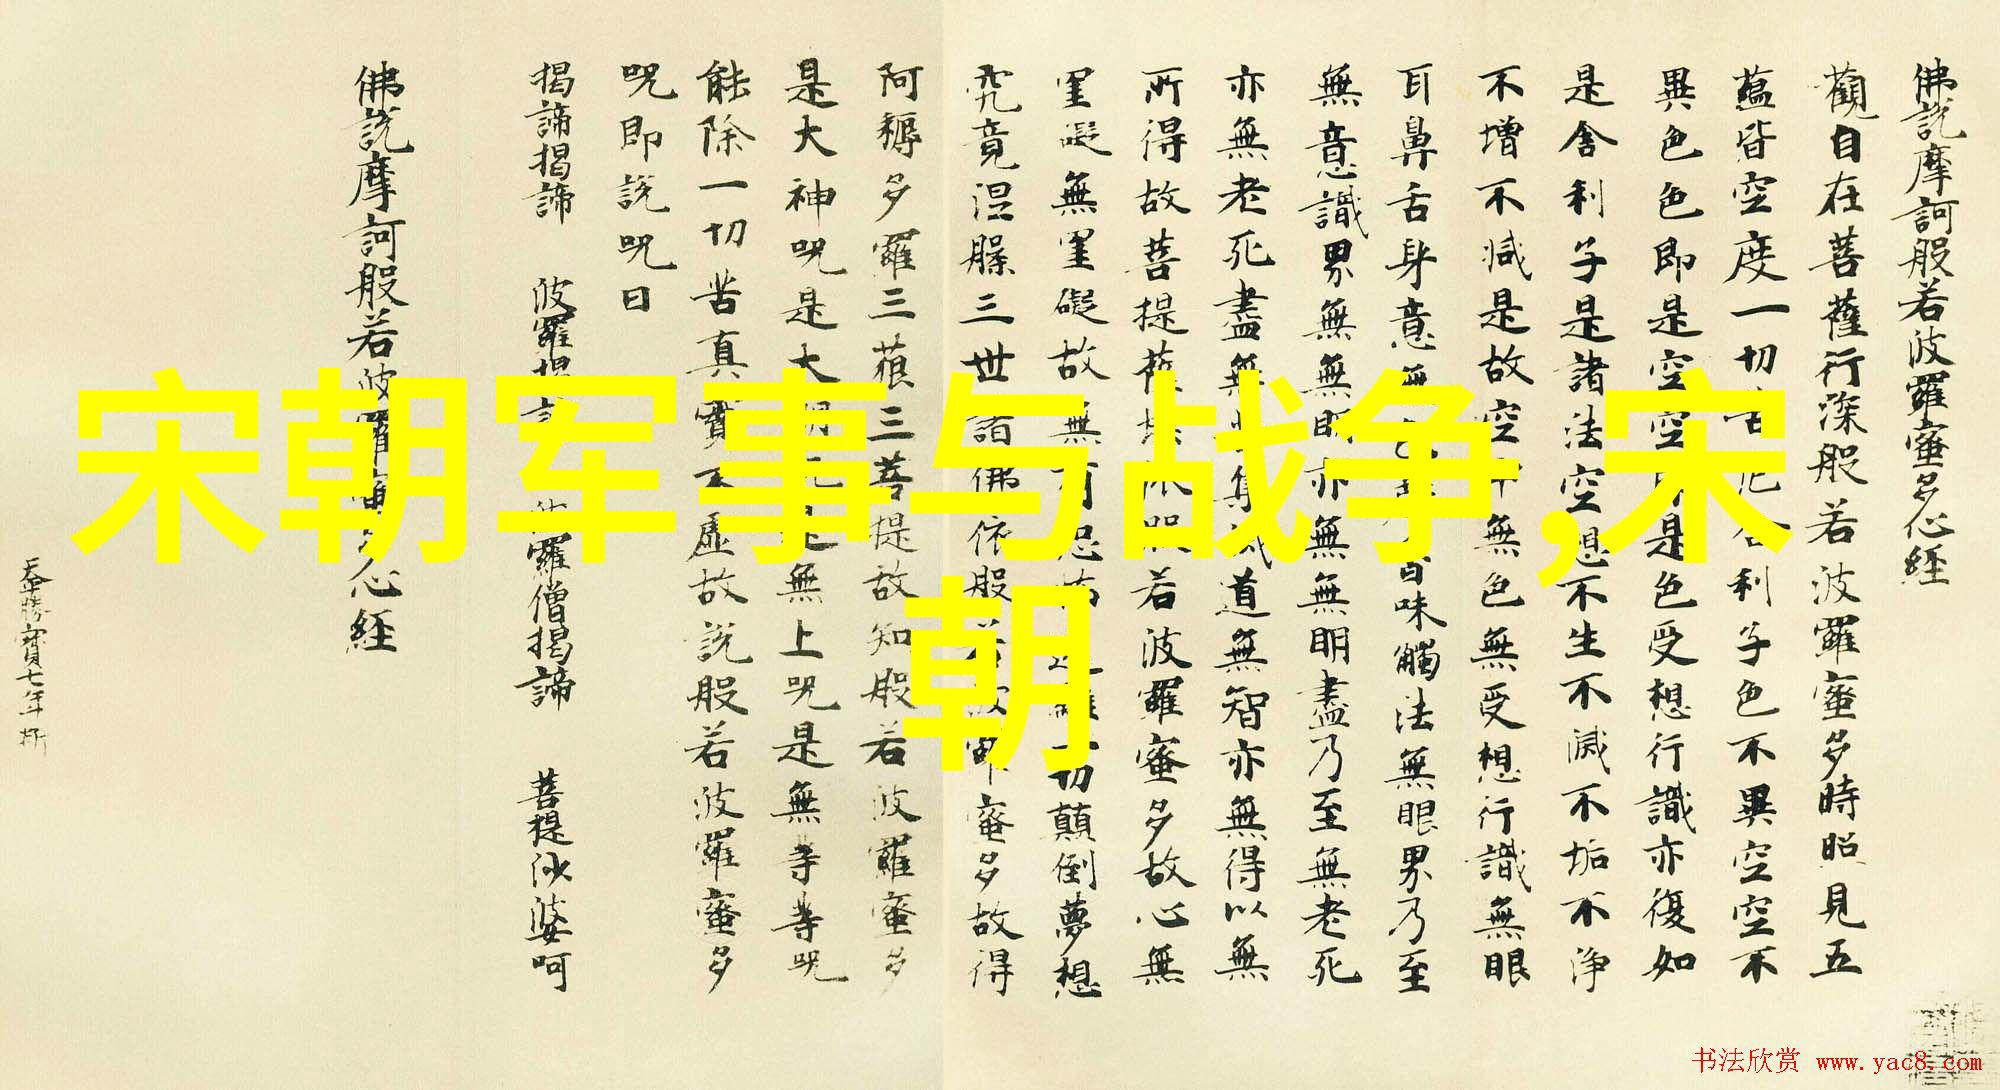 宋朝军事与战争,宋
朝
佛說摩訶般若波羅蜜多心經
觀自在菩薩行深般若波羅蜜多時照見五
蘊皆空度一切舍利子色不異空空不
異色色即是空空即是色受想行識亦復如
是舍利子是諸法空想不生不滅不垢不淨
不增不減是故空中無色無受想行識無眼
耳鼻舌身意無香味觸法無眼界乃至
無意識界無無明亦無無明盡乃至無老死
亦無老死盡無集滅道無智亦無得以無
所得故菩提薩依般若波羅蜜多故心無
罣礙無罣礙故無有恐怖離一切顛倒夢想
究竟涅槃三世諸佛依般若蜜多故得
阿耨多羅三藐三菩提故知般若波羅蜜多
是大神咒是大明咒是無上咒是無等等咒
能除一切苦真實不虛故說般若波羅蜜多
咒即說咒曰
揭諦揭諦 波羅揭諦 波羅僧揭諦 菩提沙婆呵
佛說摩訶般若波羅蜜多心經
勝寶七年
书法欣赏 www.yac8.com